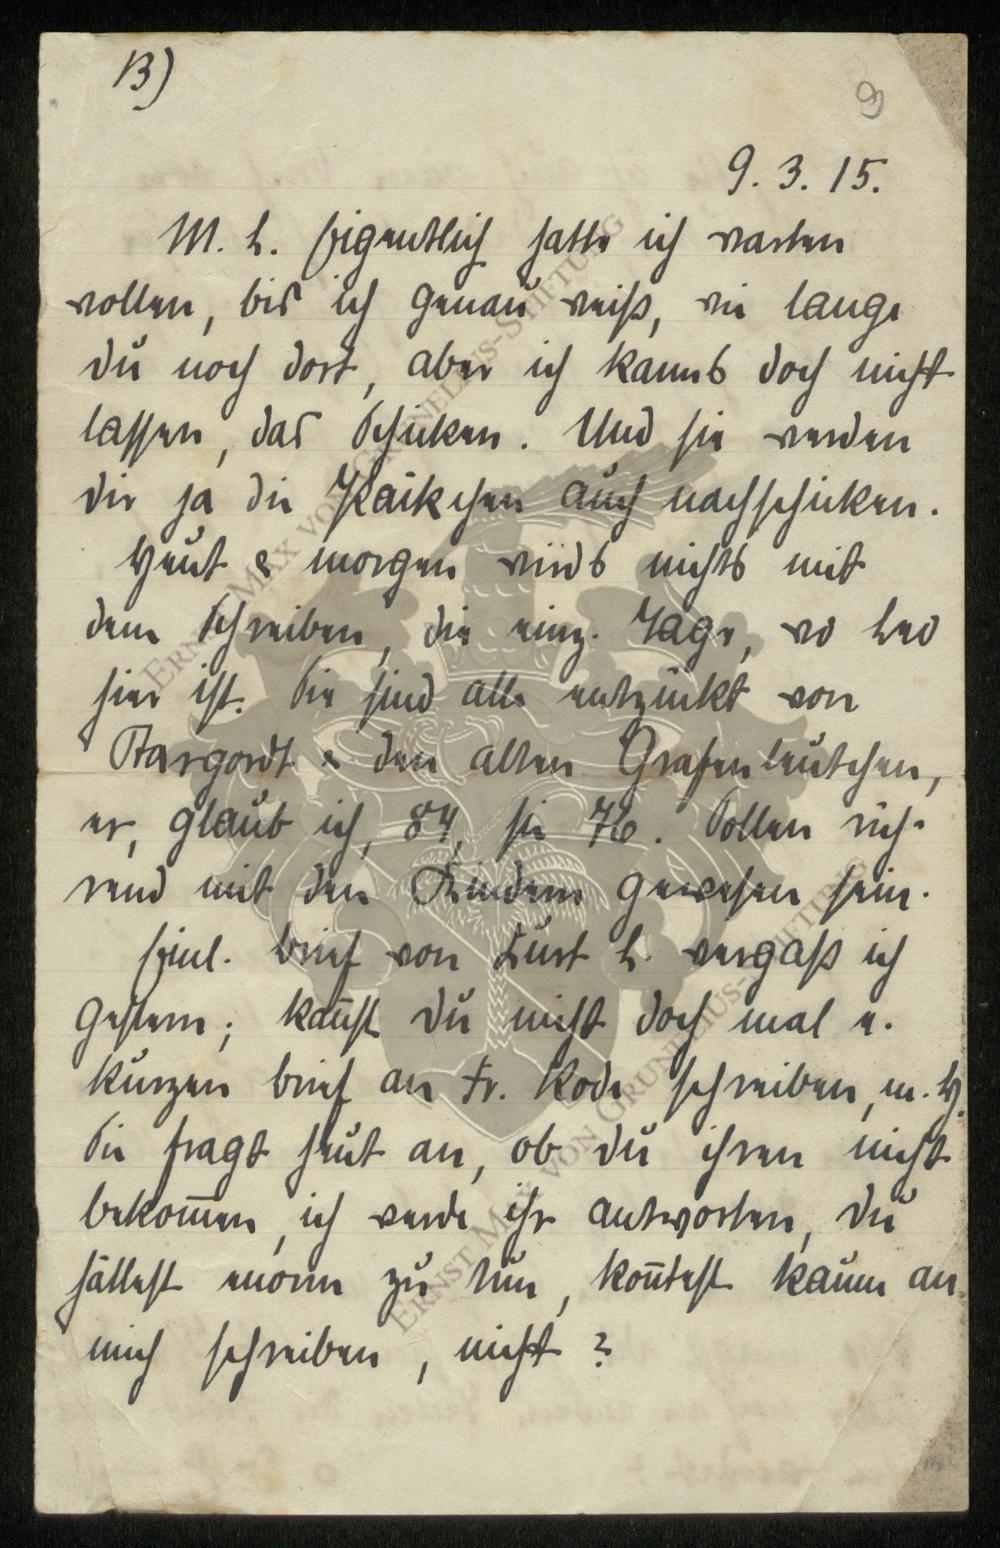 B)
9
9. 3. 15.
M. L. Eigentlich hatte ich warten
wollen, bis ich genau weiß, wie lange
du noch dort, aber ich kanns doch nicht
lassen, das Schicken. Und sie werden
dir ja die Päckchen auch nachschicken.
Heut & morgen wirds nichts mit
dem Schreiben, die einz. Tage, wo Leo
hier ist. Sie sind alle entzückt von
Stargordt & den alten Grafenleutchen,
er, glaub ich, 84, sie 76. Sollen rüh-
rend mit den Kindern gewesen sein.
Einl. Brief von Kurt L. vergaß ich
gestern; kannst du nicht doch mal e.
kurzen Brief an Fr. Rode schreiben, m. H.
Sie fragt heut an, ob du ihren nicht
bekom̄en, ich werde ihr antworten, du
hättest enorm zu tun, kon̄test kaum an
mich schreiben, nicht?
ERNST MAX VON GRUNELIUS-STIFTUNG
ERNST MAX VON GRUNELIUS-STIFTUNG